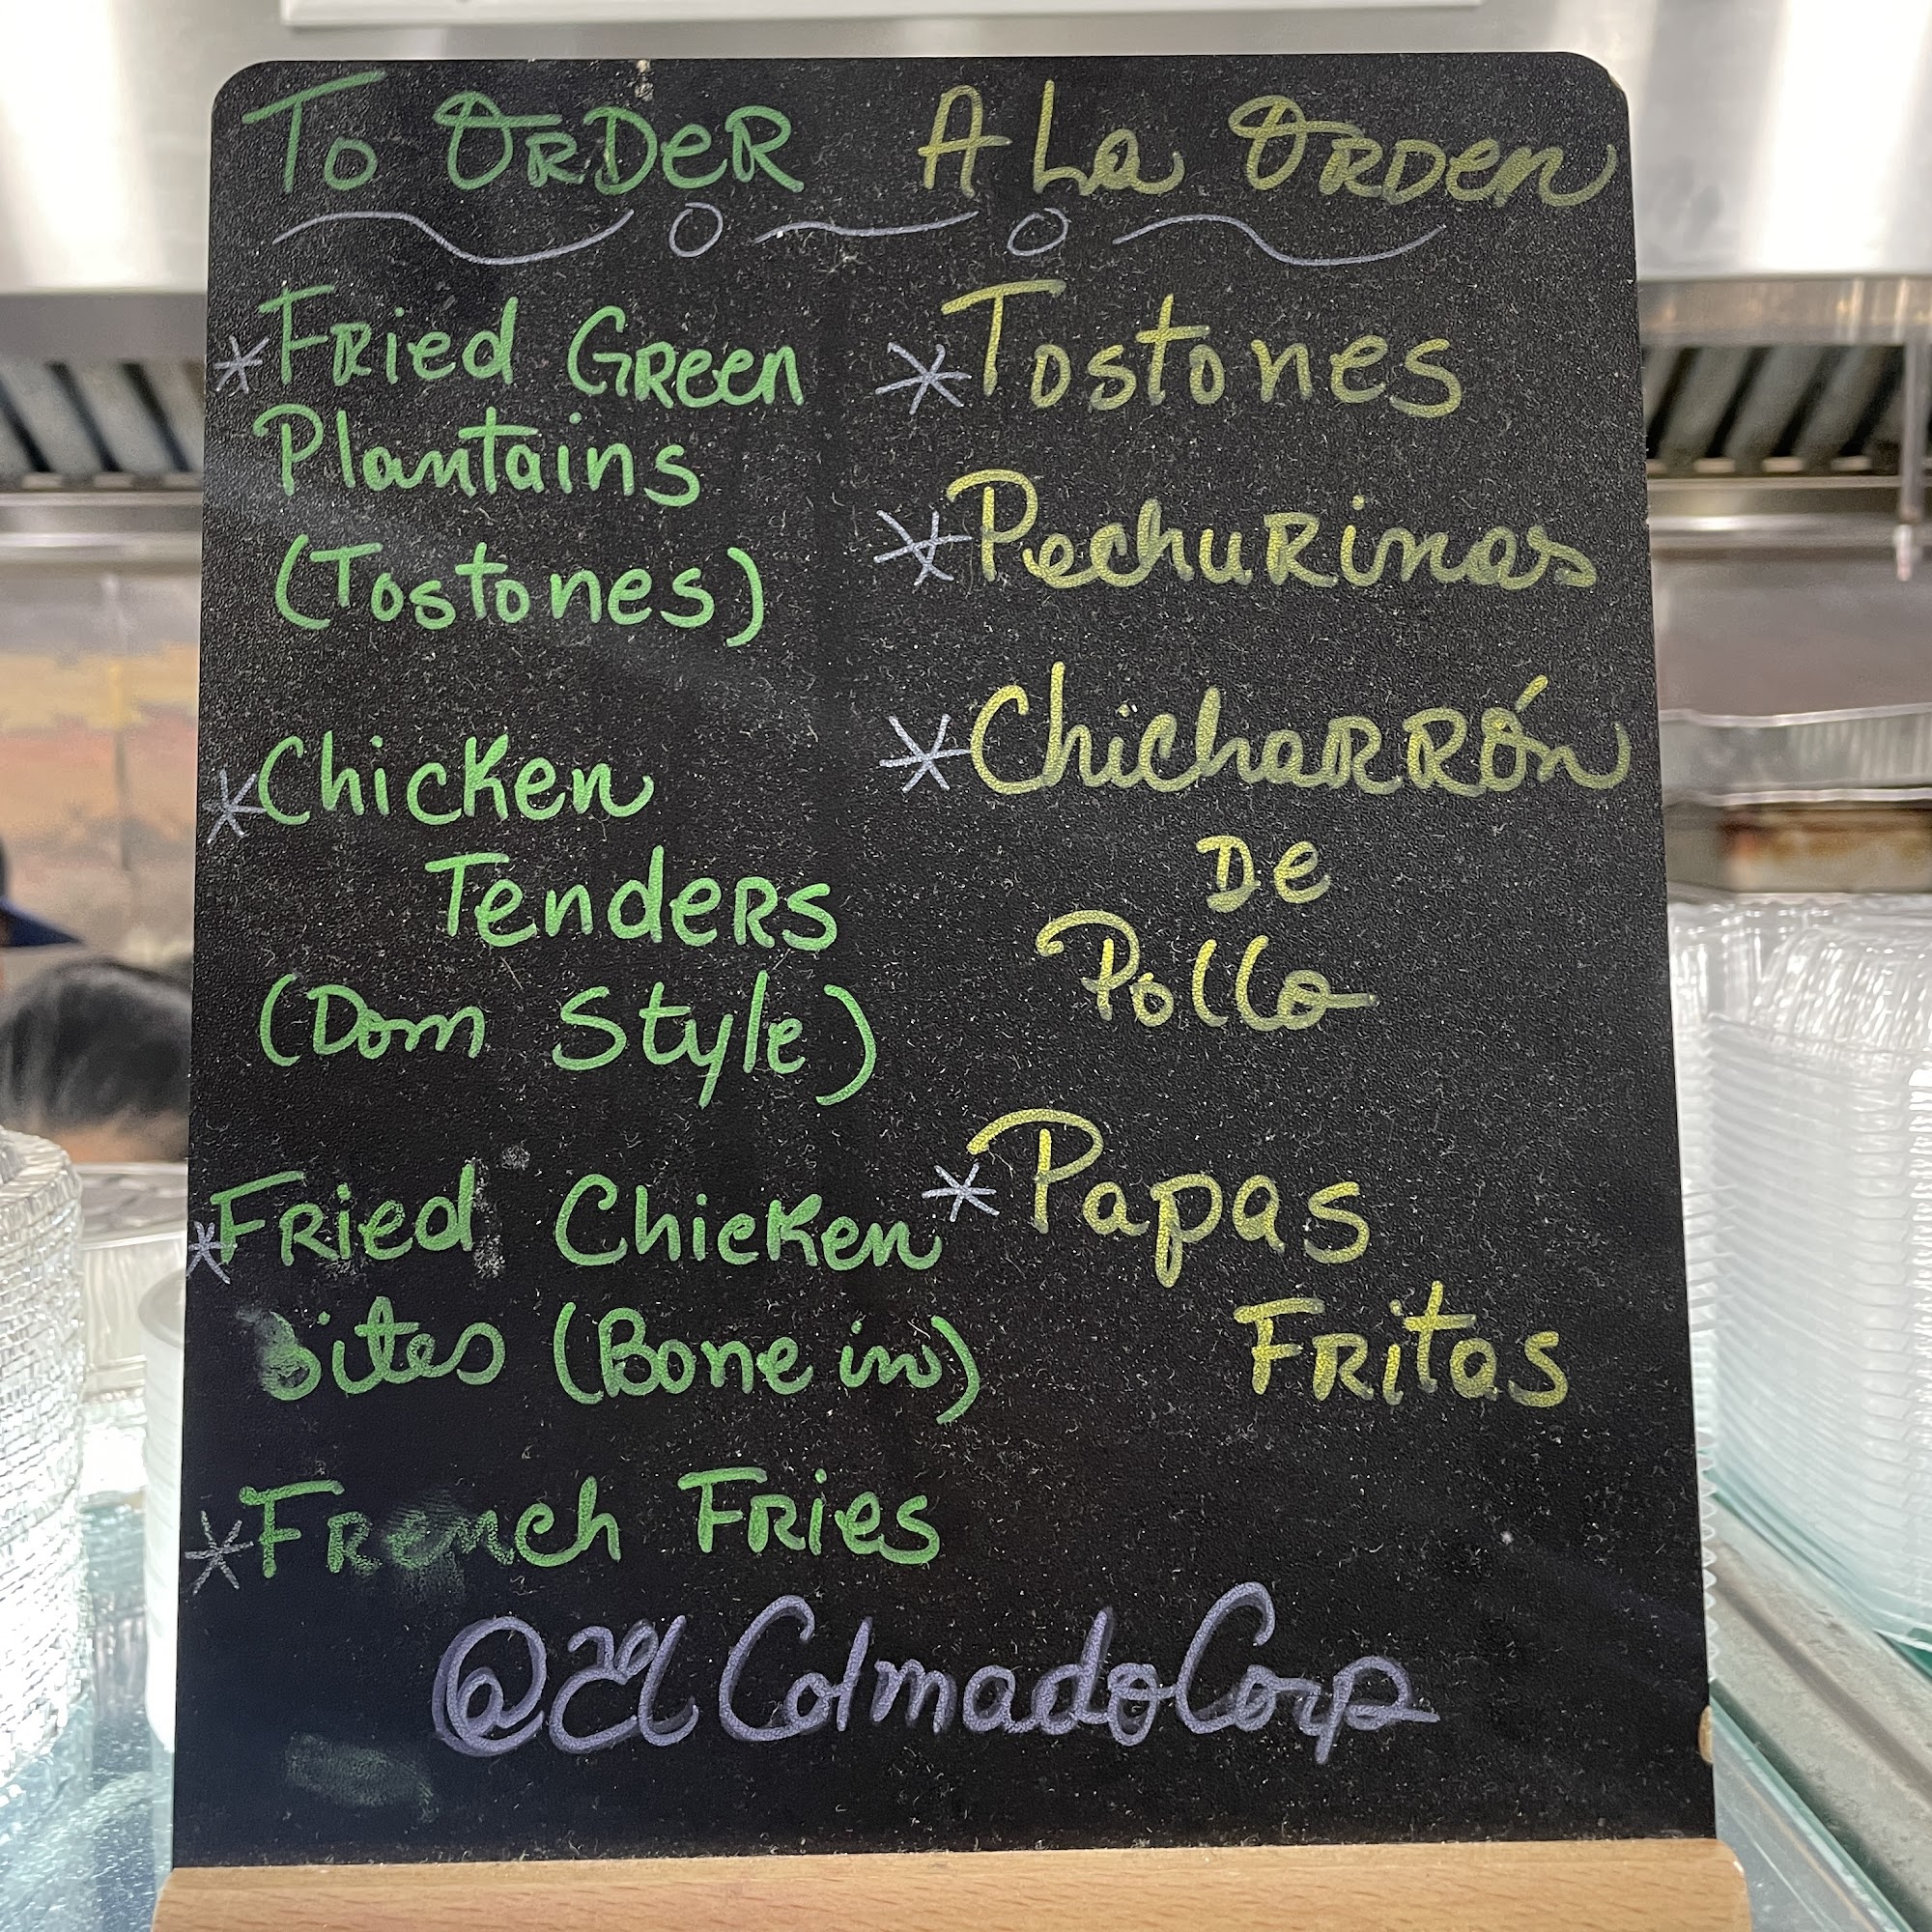 To Order
* Fried Green
Plantains
(Tostones)
* Chicken
Tenders
(Dom Style)
* Fried Chicken
Bites (Bone in)
* French Fries
A La Orden
* Tostones
* Pechurinas
* Chicharrón
De
Pollo
* Papas
Fritas
@ElColmadoCorp